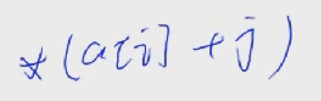 *(a[i] + j)